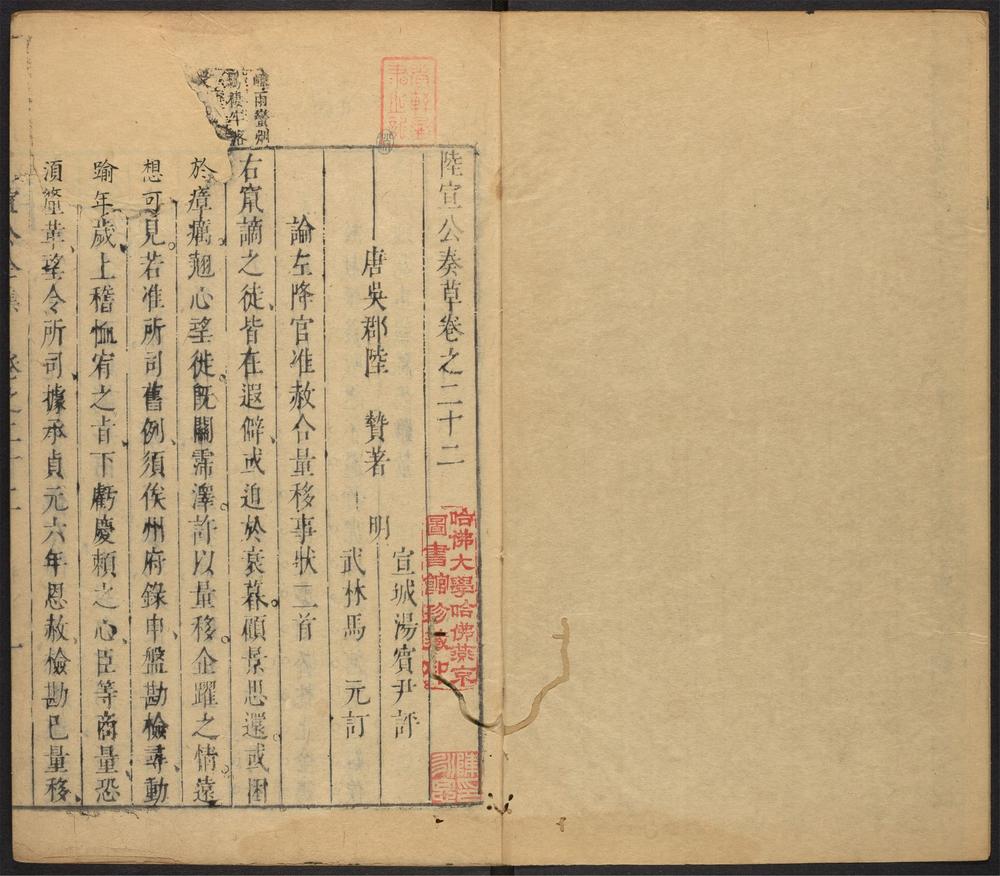 陸宣公奏草卷之二十二
唐吳郡陸 贄著
明
宣城湯賓尹評
武林馬 元訂
論左降官准赦合量移事狀三首
右竄謫之徒皆在遐僻或迫於衰暮顧景思還或困
於瘴癘翹心望徙既關霈澤許以量移企躍之情遠
想可見若准所司舊例須俟州府錄申盤勘檢尋動
踰年歲上稽恤宥之旨下虧慶賴之心臣等商量恐
須釐革望令所司據承貞元六年恩赦檢勘已量移
雨蠻烟
棲牛
哈佛大學哈佛燕京
圖書館珍藏印